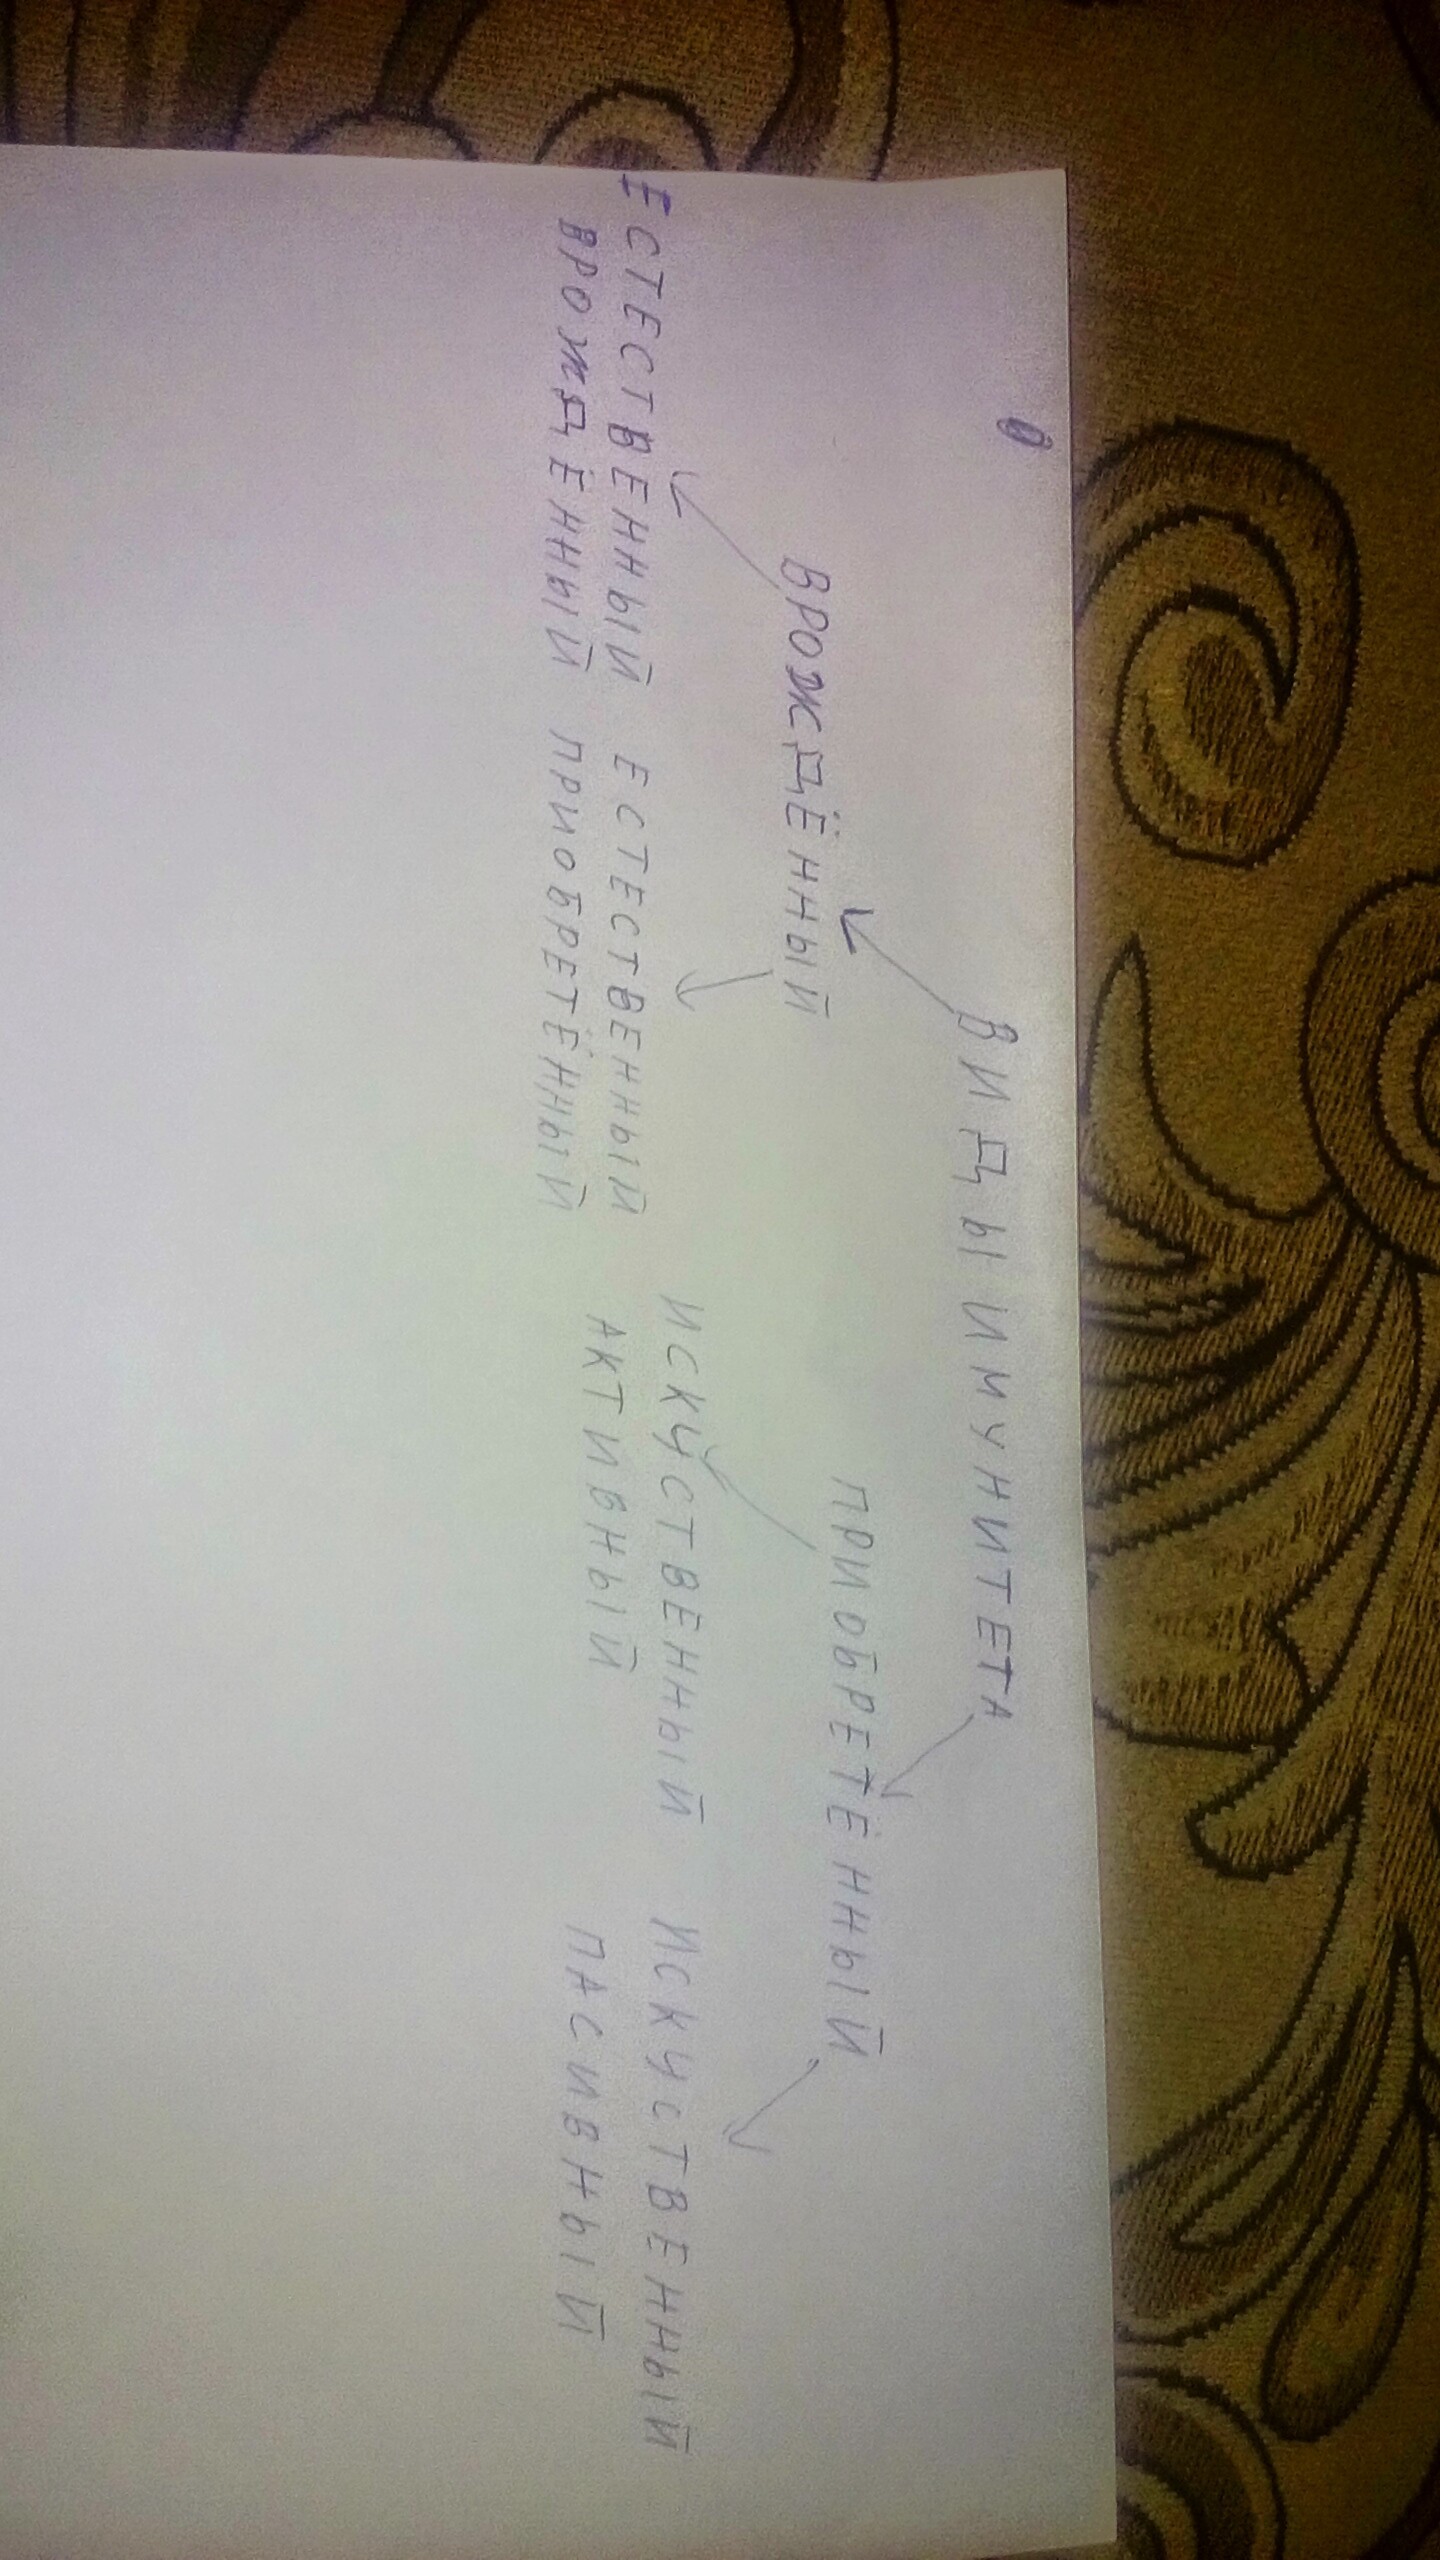 ВИДЫ ИМУНИТЕТА
ВРОЖДЁННЫЙ ПРИОБРЕТЁННЫЙ
ЕСТЕСТВЕННЫЙ ЕСТЕСТВЕННЫЙ ИСКУСТВЕННЫЙ ИСКУСТВЕННЫЙ
ВРОЖДЁННЫЙ ПРИОБРЕТЁННЫЙ АКТИВНЫЙ ПАСИВНЫЙ